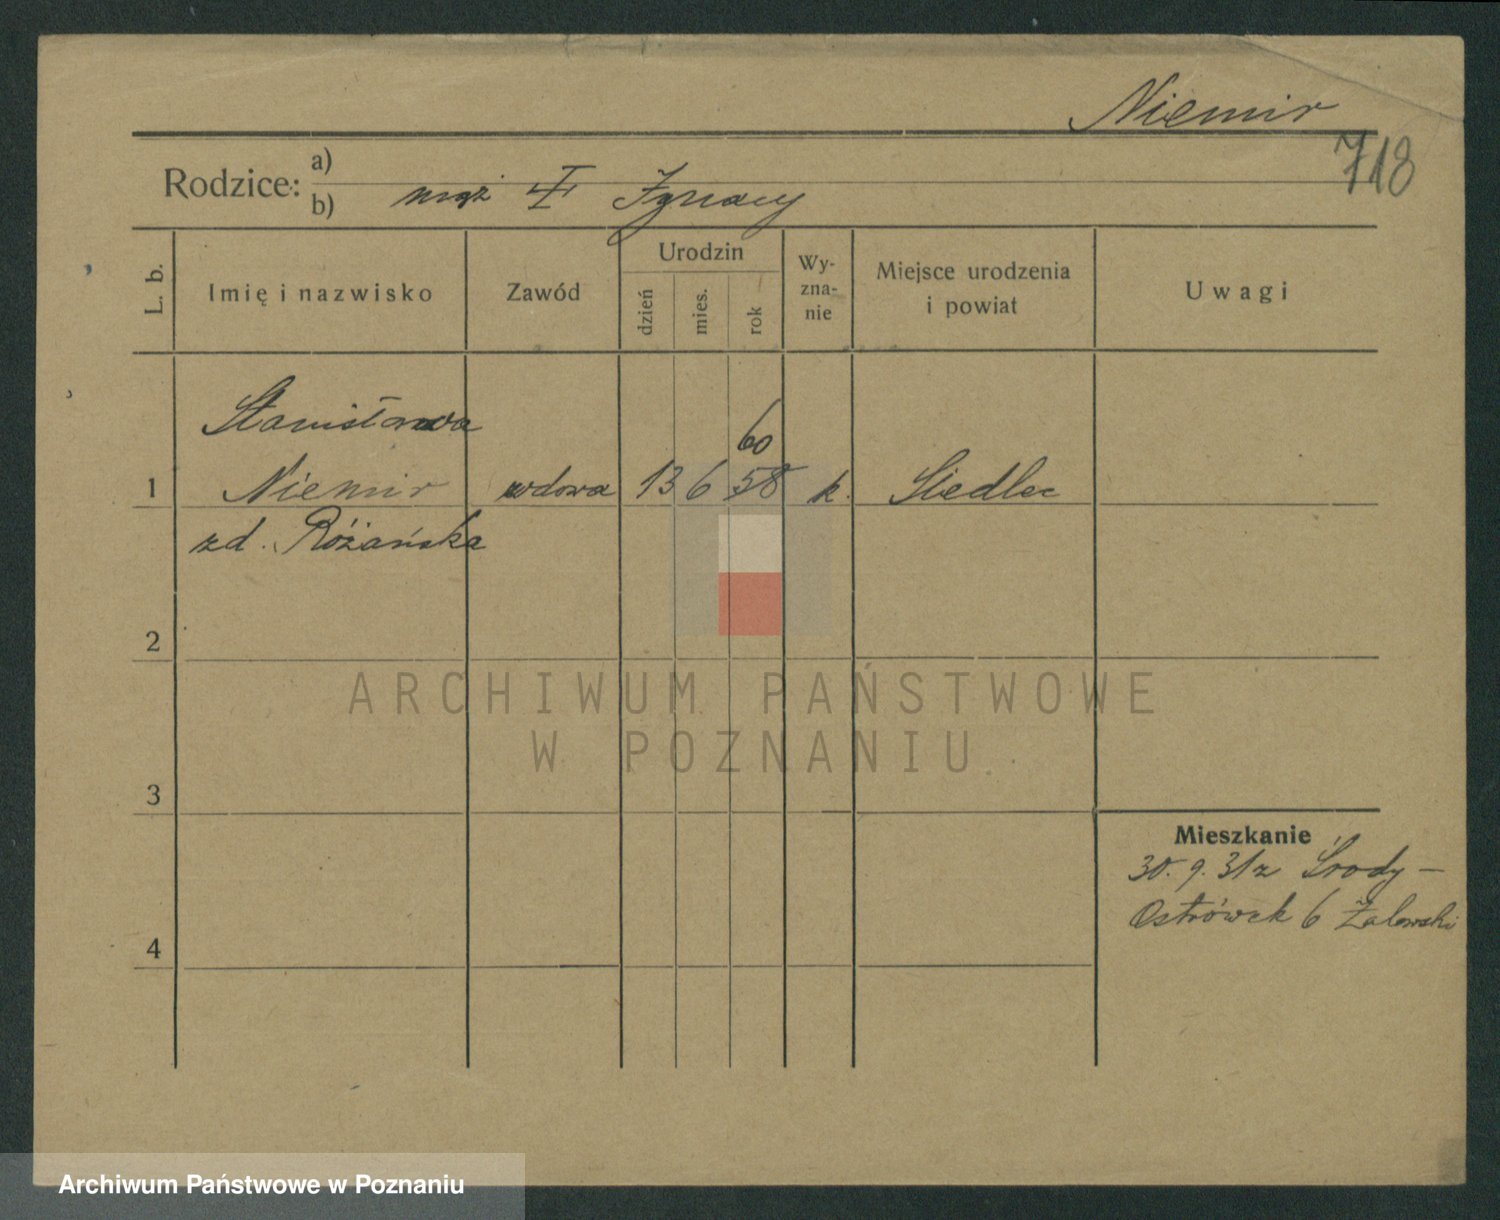 Niemir
718
Rodzice: a)
b) mąż I Ignacy
L. b.
Imię i nazwisko
Zawód
Urodzin
dzień
mies.
rok
Wy-
zna-
nie
Miejsce urodzenia
i powiat
Uwagi
Stanisława
60
1 Niemir wdowa 13 6 58 k. Siedlec
zd. Różańska
2
3
4
Mieszkanie
30.9.31 z Środy –
Ostrówek 6 Żalewski
ARCHIWUM PAŃSTWOWE
W POZNANIU
Archiwum Państwowe w Poznaniu